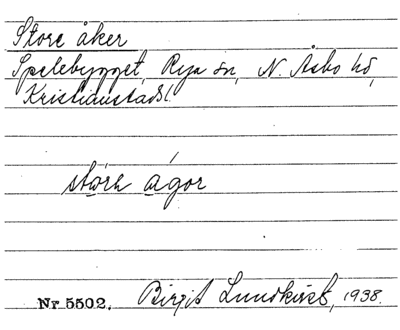 Store åker
Spelebygget, Rya sn, N. Åsbo hd,
Kristianstads l.
stǫrɛ ągor
Nr 5502. Birgit Lundkvist, 1938.